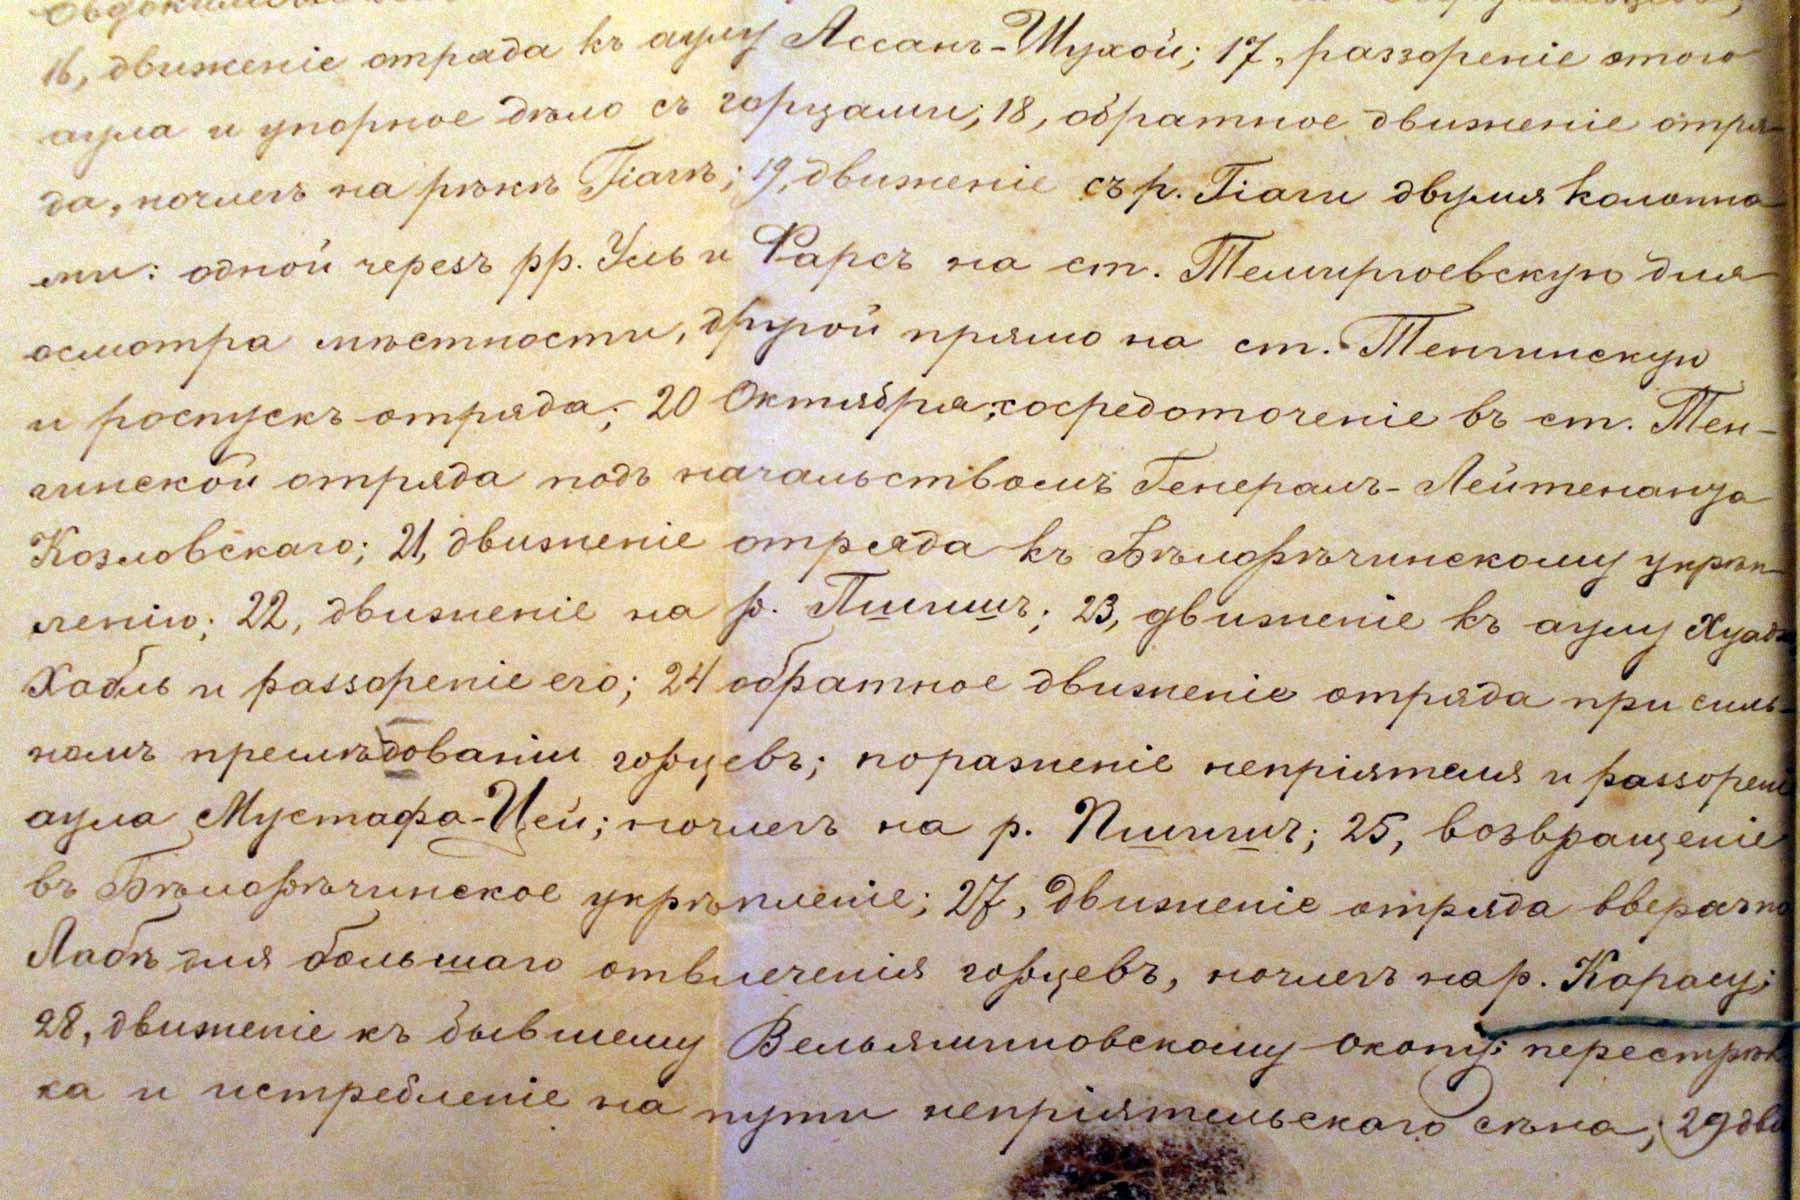 16, движеніе отряда къ аулу Ассанъ-Шухой; 17, раззореніе этого
аула и упорное дѣло съ горцами; 18, обратное движеніе отря-
да, ночлегъ на рѣкѣ Гіагѣ; 19, движеніе съ р. Гіаги двумя колонна
ми: одной черезъ рр. Уль и Фарсъ на ст. Темиргоевскую для
осмотра мѣстности, другой прямо на ст. Тенгинскую
и роспускъ отряда; 20 Октября, сосредоточеніе въ ст. Тен-
гинской отряда подъ начальствомъ Генералъ-Лейтенанта
Козловскаго; 21, движеніе отряда къ Бѣлорѣчинскому укрѣп-
ленію; 22, движеніе на р. Пшишъ; 23, движеніе къ аулу
Хабль и раззореніе его; 24 обратное движеніе отряда при силь-
номъ преслѣдованіи горцевъ; пораженіе непріятеля и раззорені
аула Мустафа-Цей; ночлегъ на р. Пшишъ; 25, возвращеніе
въ Бѣлорѣчинское укрѣпленіе; 27, движеніе отряда вверхъ по
Лабѣ для большаго отвлеченія горцевъ, ночлегъ на р. Карасу;
28, движеніе къ бывшему Вельяминовскому окопу; перестрѣл
ка и истребленіе на пути непріятельскаго сѣна; 29 дви